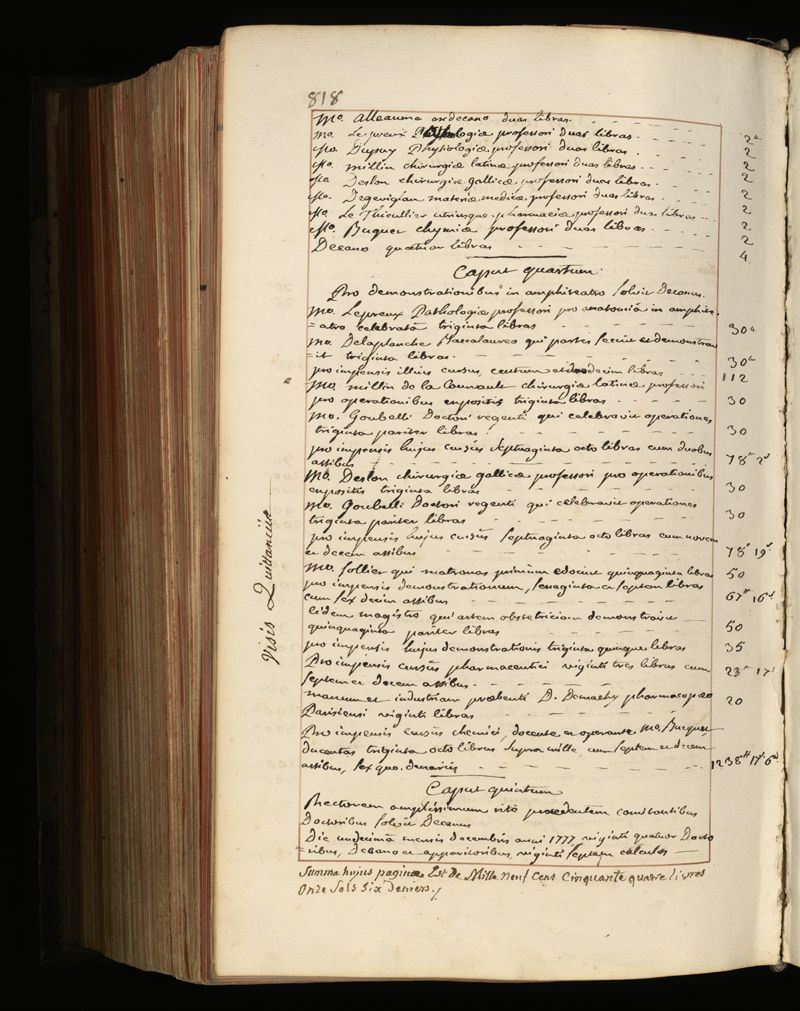 818
Mo. Alleaume exdecano duas libras.
Mo. Le preux professori duas libras. 2
Mo. Dupuy Physiologiæ professori duas libras 2
Mo. Millin chirurgiæ latinæ professori duas libras 2
Mo. Deslon chirurgiæ gallicæ professori duas libras 2
Mo. materiæ medicæ professori duas libras 2
Mo. Le Thieullier utriusque pharmaciæ professori duas libras 2
Mo. Bucquet chymiæ professori duas libras 2
Decano quatuor libras 4
Caput quartum.
Pro demonstrationibus in amphiteatro solvit Decanus.
Mo. Lepreux Pathologiæ professori pro anatomiâ in amphite
=atro celebratâ triginta libras 30
Mo. Delaplanche Baccalaureo qui partes secuit et demonstrav
it triginta libras. 30
pro impensis illius cursus, centum et duodecim libras 112
Mo. Millin de la Courvault chirurgiæ latinæ professori
pro operationibus expositis triginta libras 30
Mo. Goubelli Doctori regenti qui celebravit operationes
triginta pariter libras. 30
pro impensis hujus cursûs septuaginta octo libras cum duobus
assibus 78 2
Mo. Deslon chirurgiæ gallicæ professori pro operationibus
expositis triginta libras 30
Mo. Goubelli Doctori regenti qui celebravit operationes
triginta pariter libras 30
pro impensis hujus cursûs septuaginta octo libras cum novem
et decem assibus 78 19
Visis Quittanciis
Mo. Sollier qui matronas primum edocuit quinquaginta libras 50
pro impensis demonstrationum, sexaginta et septem libras
cum sex decim assibus 67 16
Eidem magistro qui artem obstetriciam demonstravit
quinquaginta pariter libras 50
pro impensis hujus demonstrationis triginta quinque libras 35
Pro impensis cursûs pharmaceutici viginti tres libras cum
septem et decem assibus. 23 17
manum et industriam præbenti D. Demachy pharmacopæo
Parisiensi viginti libras 20
Pro impensis cursûs chemici, docente et operante Mo. Bucquet
ducentas triginta octo libras supra mille cum septem et decem
assibus, sex quo. denariis 1238 17 6
Caput quintum
Rectorem amplissimum ritè procedentem comitantibus
Doctoribus solvit Decanus
Die undecimâ mensis decembris anni 1777, viginti quatuor Docto
=ribus, Decano et apparitoribus, viginti septem calculos
Summa hujus paginæ Est de Mille neuf cent Cinquante quatre livres
Onze Sols Six deniers./